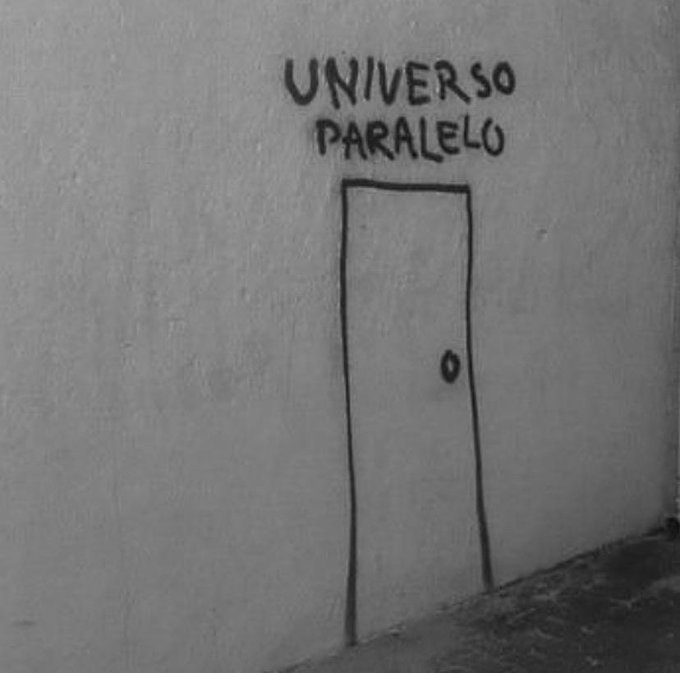 UNIVERSO
PARALELO